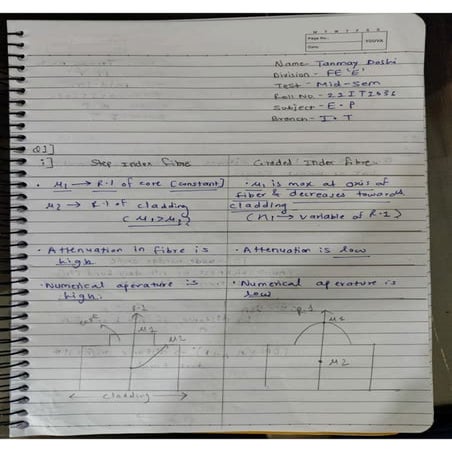 M T W T F S S
Page No.:
Date:
YOUVA
Name- Tanmay Doshi
Division - FE 'E'
Test - Mid-Sem
Roll No.- 22IT1031
Subject - E.P
Branch - I.T
Q1]
i] Step Index fibre Graded Index fibre
• μ1 → R.I of core [constant] • μ1 is max at axis of
fiber & decreases towards
μ2 → R.I of cladding cladding
(μ1>μ2) (μ1 → variable of R.I)
• Attenuation in fibre is • Attenuation is low
high.
• Numerical aperature is • Numerical aperature is
high. low
R.I
core μ1
μ2
← Cladding →
R.I
μ1
μ2